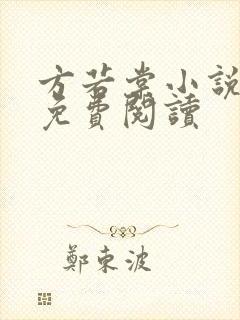 方若棠小說
免費閱讀
鄭東波